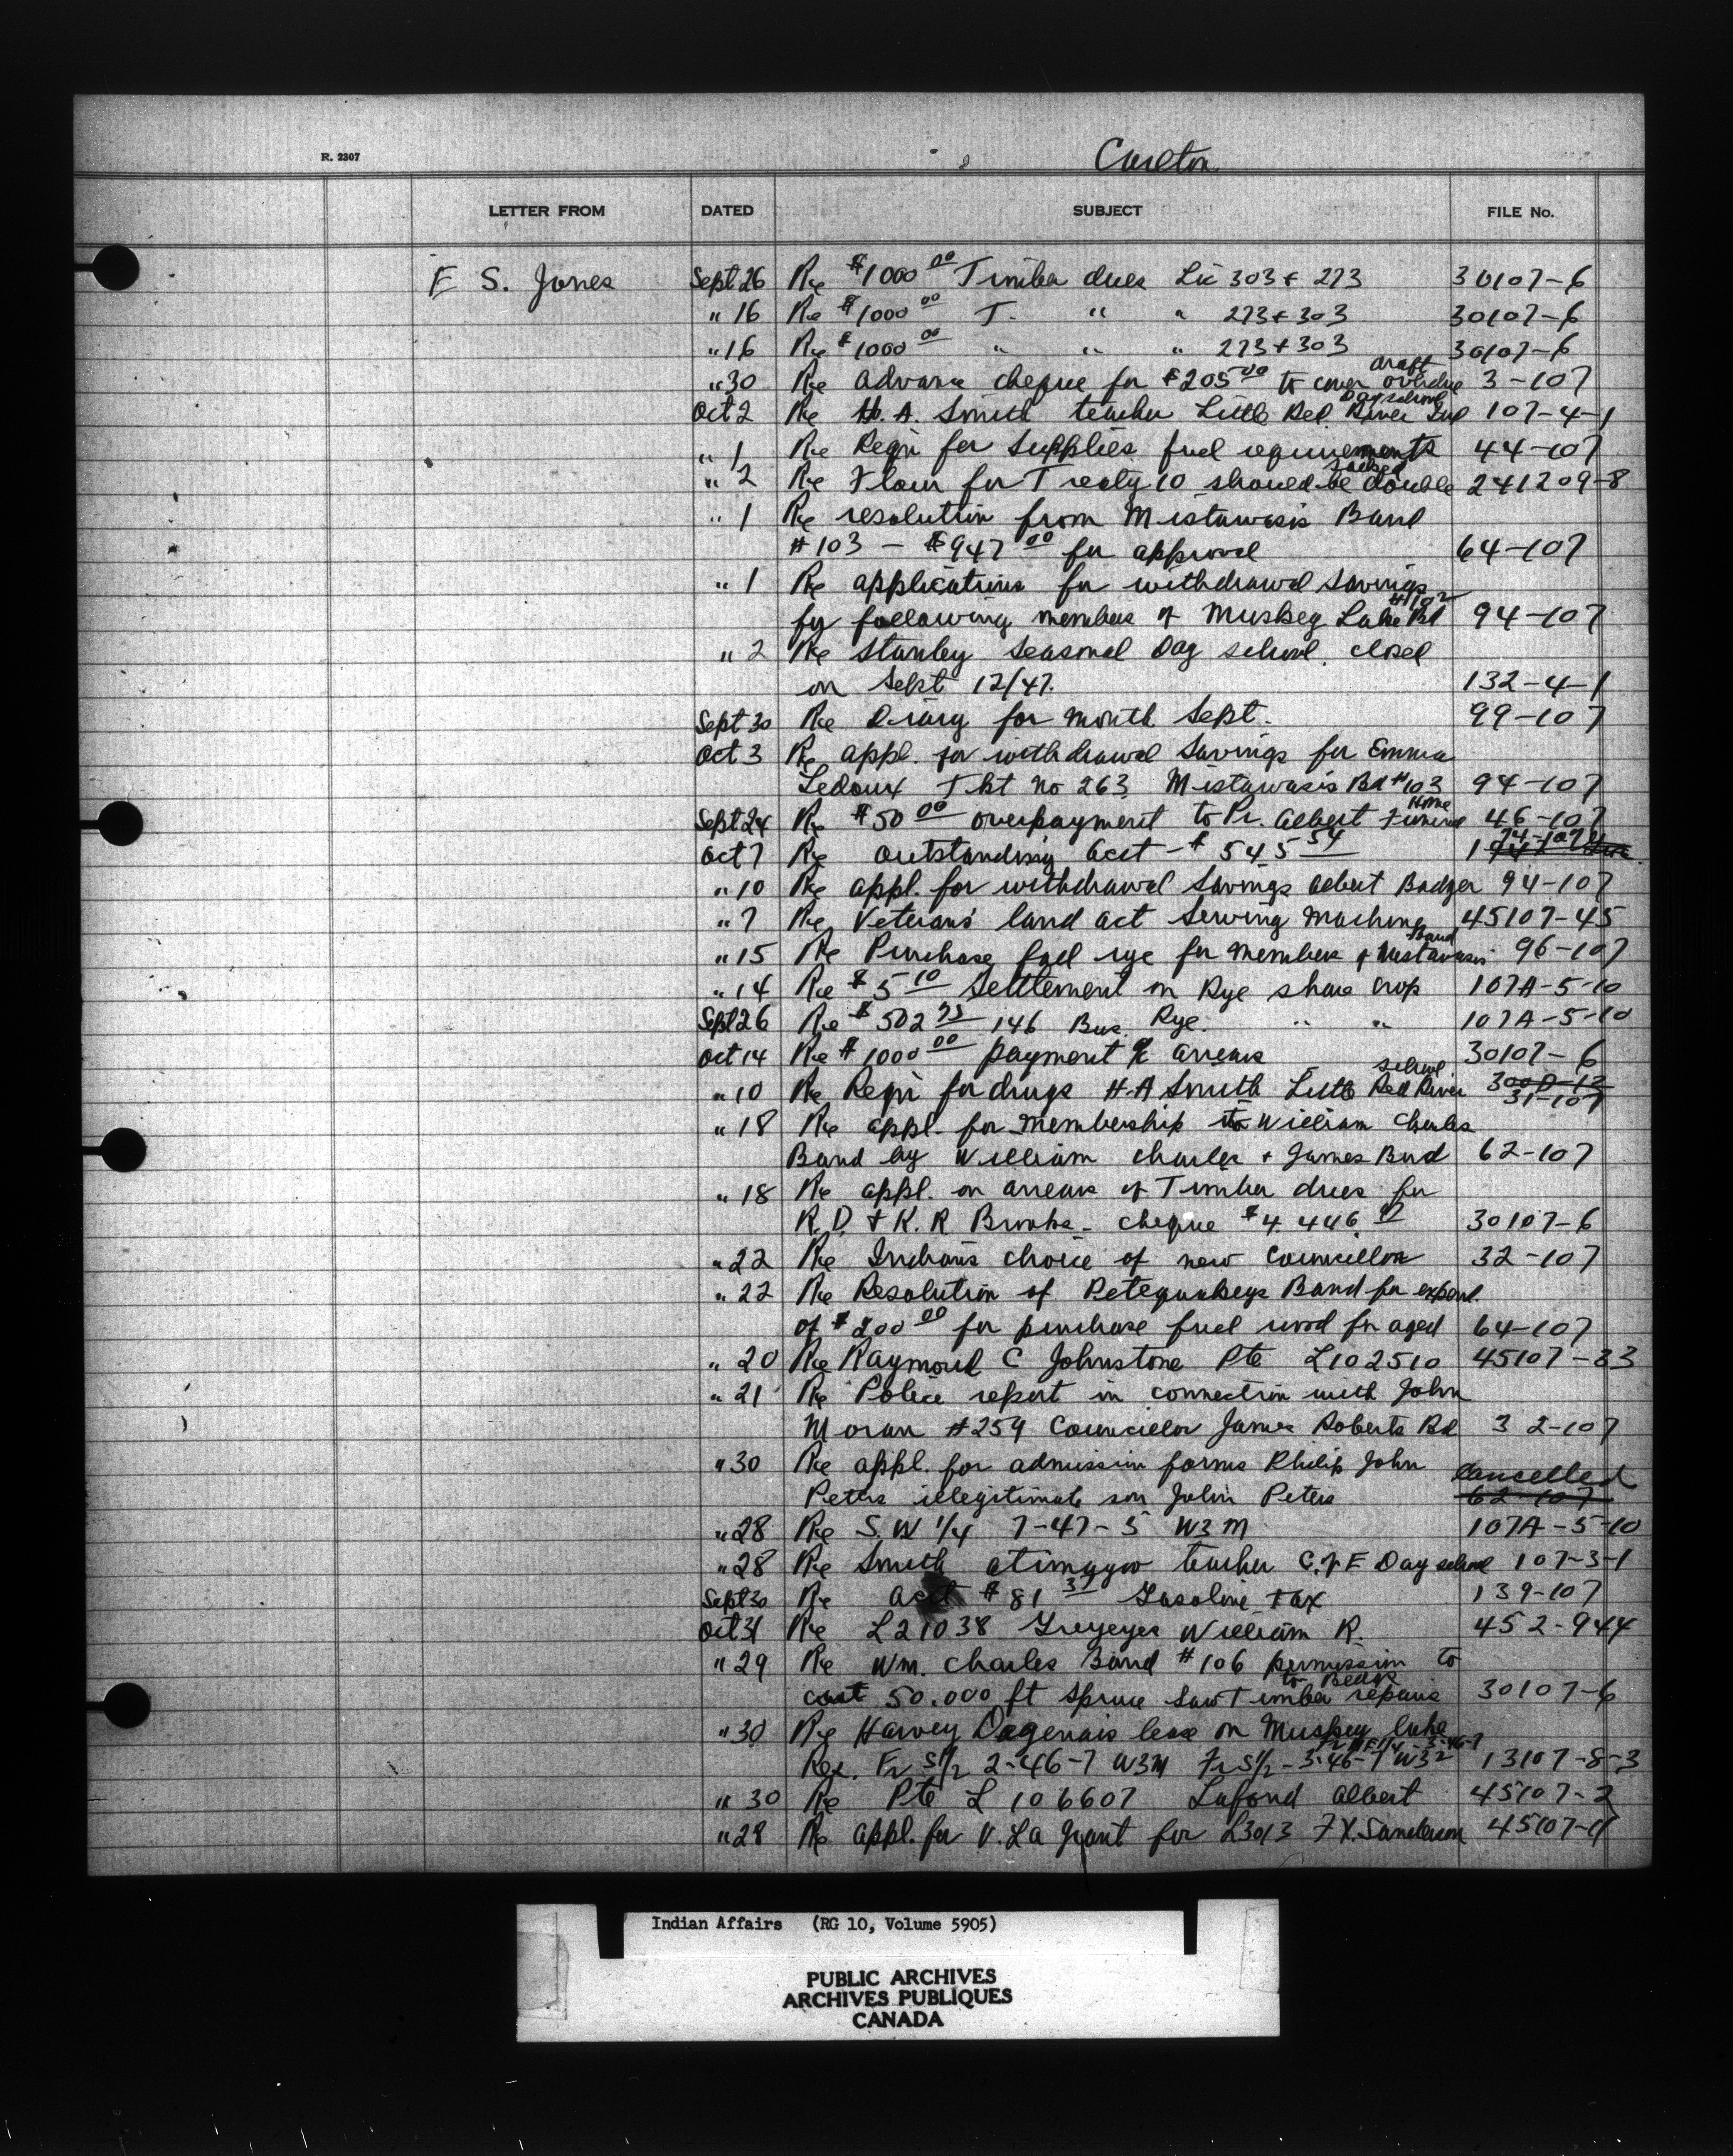 R. 2307
Carlton
LETTER FROM DATED SUBJECT FILE No.
E S. Jones Sept 26 Re $1000 00 Timber dues Lic 303 & 273 30107-6
" 16 Re $1000 00 T. " " 273 & 303 30107-6
" 16 Re $1000 00 " " " 273 & 303 30107-6
draft
" 30 Re advance cheque for $205 00 to cover overdue 3-107
Day school
Oct 2 Re H. A. Smith teacher Little Red River Ind 107-4-1
" 1 Re Reqn for supplies fuel requirements 44-107
sacked
" 2 Re Flour for Treaty 10 should be double 241209-8
" 1 Re resolution from Mistawasis Band
#103 - $947 00 for approval 64-107
" 1 Re applications for withdrawal savings
#102
by following members of Muskeg Lake Bd 94-107
" 2 Re Stanley Seasonal Day school closed
on Sept 12/47. 132-4-1
Sept 30 Re Diary for month Sept. 99-107
Oct 3 Re appl. for withdrawal Savings for Emma
Ledoux Tkt No 263 Mistawasis Bd #103 94-107
Home
Sept 24 Re $50 00 overpayment to Pr. Albert Funeral 46-107
74-107
Oct 7 Re outstanding acct - $545 54 1
" 10 Re appl. for withdrawal Savings Albert Badger 94-107
" 7 Re Veterans' land act Sewing Machine 45107-45
Band
" 15 Re Purchase fall rye for members of Mistawasis 96-107
" 14 Re $5 10 Settlement on Rye share crop 107A-5-10
Sept 26 Re $502 75 146 Bus. Rye. " " 107A-5-10
Oct 14 Re $1000 00 payment a/c arrears 30107-6
school
" 10 Re Reqn for drugs H-A Smith Little Red River 300D-12
31-107
" 18 Re appl. for membership to William Charles
Band by William Charles & James Bird 62-107
" 18 Re appl. on arrears of Timber dues for
R. D. & K. R. Brooks - cheque $4,446 30107-6
" 22 Re Indians choice of new Councillor 32-107
" 22 Re Resolution of Petequakeys Band for expend.
of $200 00 for purchase fuel wood for aged 64-107
" 20 Re Raymond C Johnstone Pte L102510 45107-33
" 21 Re Police report in connection with John
Moran #259 Councillor James Roberts Bd 32-107
" 30 Re appl. for admission forms Philip John
Cancelled
Peters illegitimate son John Peters 62-107
" 28 Re S. W 1/4 7-47-5 W3M 107A-5-10
" 28 Re Smith Atimoyoo teacher C. of E Day school 107-3-1
Sept 30 Re acct $81 37 Gasoline tax 139-107
Oct 31 Re L21038 Greyeyes William R. 452-944
" 29 Re Wm. Charles Band #106 permission to
to Beds
cut 50.000 ft Spruce Saw Timber repairs 30107-6
" 30 Re Harvey Dagenais lease on Muskeg Lake
Fr N E 1/4 - 3-46-7
Res. Fr S 1/2 2-46-7 W3M Fr S 1/2 - 3-46-7 W32 13107-8-3
" 30 Re Pte L 106607 Lafond Albert 45107-2
" 28 Re appl. for V. L a Grant for L3013 F X. Sanderson 45107-11
Indian Affairs (RG 10, Volume 5905)
PUBLIC ARCHIVES
ARCHIVES PUBLIQUES
CANADA